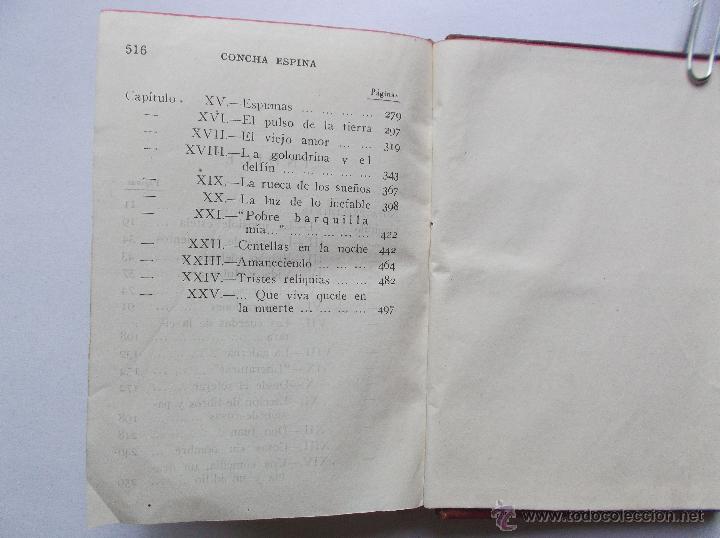 516
CONCHA ESPINA
Páginas
Capítulo . XV.—Espumas ... ... ... ... 279
— XVI.—El pulso de la tierra 297
— XVII.—El viejo amor ... ... 319
— XVIII.—La golondrina y el
delfín ... ... ... ... ... 343
— XIX.—La rueca de los sueños 367
— XX.—La luz de lo inefable 398
— XXI.—"Pobre barquilla
mía..." ... ... ... ... 422
— XXII.—Centellas en la noche 442
— XXIII.—Amaneciendo ... ... ... 464
— XXIV.—Tristes reliquias ... ... 482
— XXV.—... Que viva quede en
la muerte ... ... ... ... 497
www.todocoleccion.net